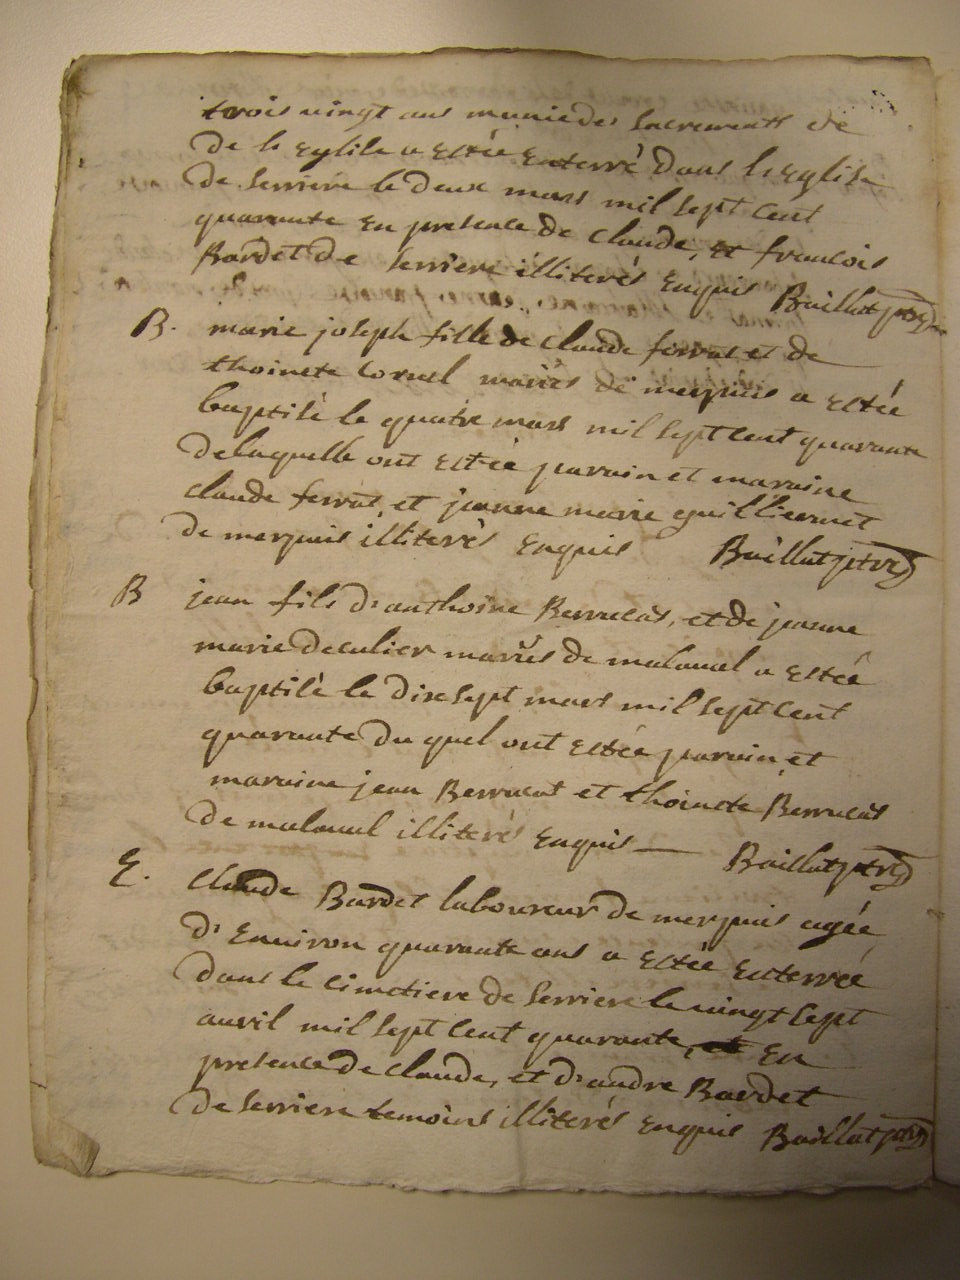 trois vingt ans munie des sacrements de
de l'Eglise a estée enterré dans l'Eglise
de serriere le deux mars mil sept cent
quarante en presence de claude, et francois
Bardet de serriere illiterés enquis Baillat ptre
B. marie joseph fille de claude ferrat et de
thoinete Cornel mariés de merpuis a estée
baptisé le quatre mars mil sept cent quarante
de laquelle ont estée parain et maraine
claude ferrat, et jeanne marie guilliermet
de merpuis illiterés enquis Baillat ptre
B jean fils d'anthoine Berrucat, et de jeanne
marie decalier mariés de malaval a estée
baptisé le dix sept mars mil sept cent
quarante du quel ont estée parain et
maraine jean Berrucat et thoinete Berrucat
de malaval illiterés enquis Baillat ptre
E. claude Bardet laboureur de merpuis agée
d'environ quarante ans a estée enterrée
dans le cimetiere de serriere le vingt sept
avril mil sept cent quarante, en
presence de claude, et d'andre Bardet
de serriere temoins illiterés enquis Baillat ptre